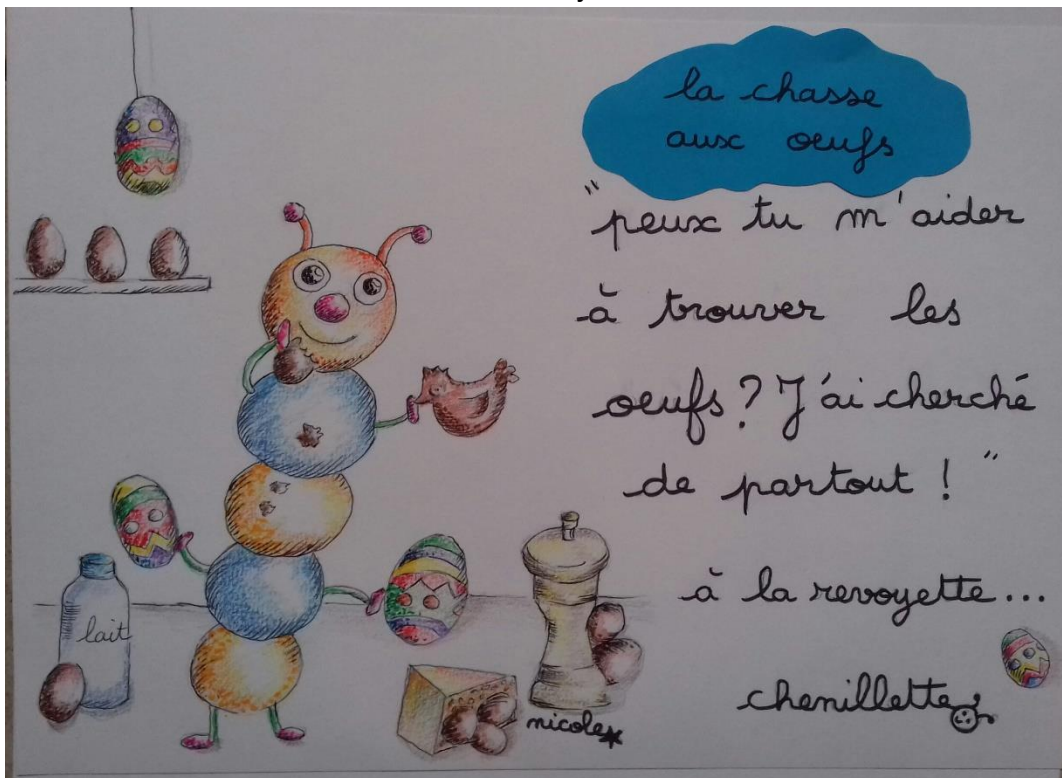 la chasse
aux oeufs
"peux tu m'aider
à trouver les
oeufs? J'ai cherché
de partout!"
à la revoyette...
chenillette
lait
nicole